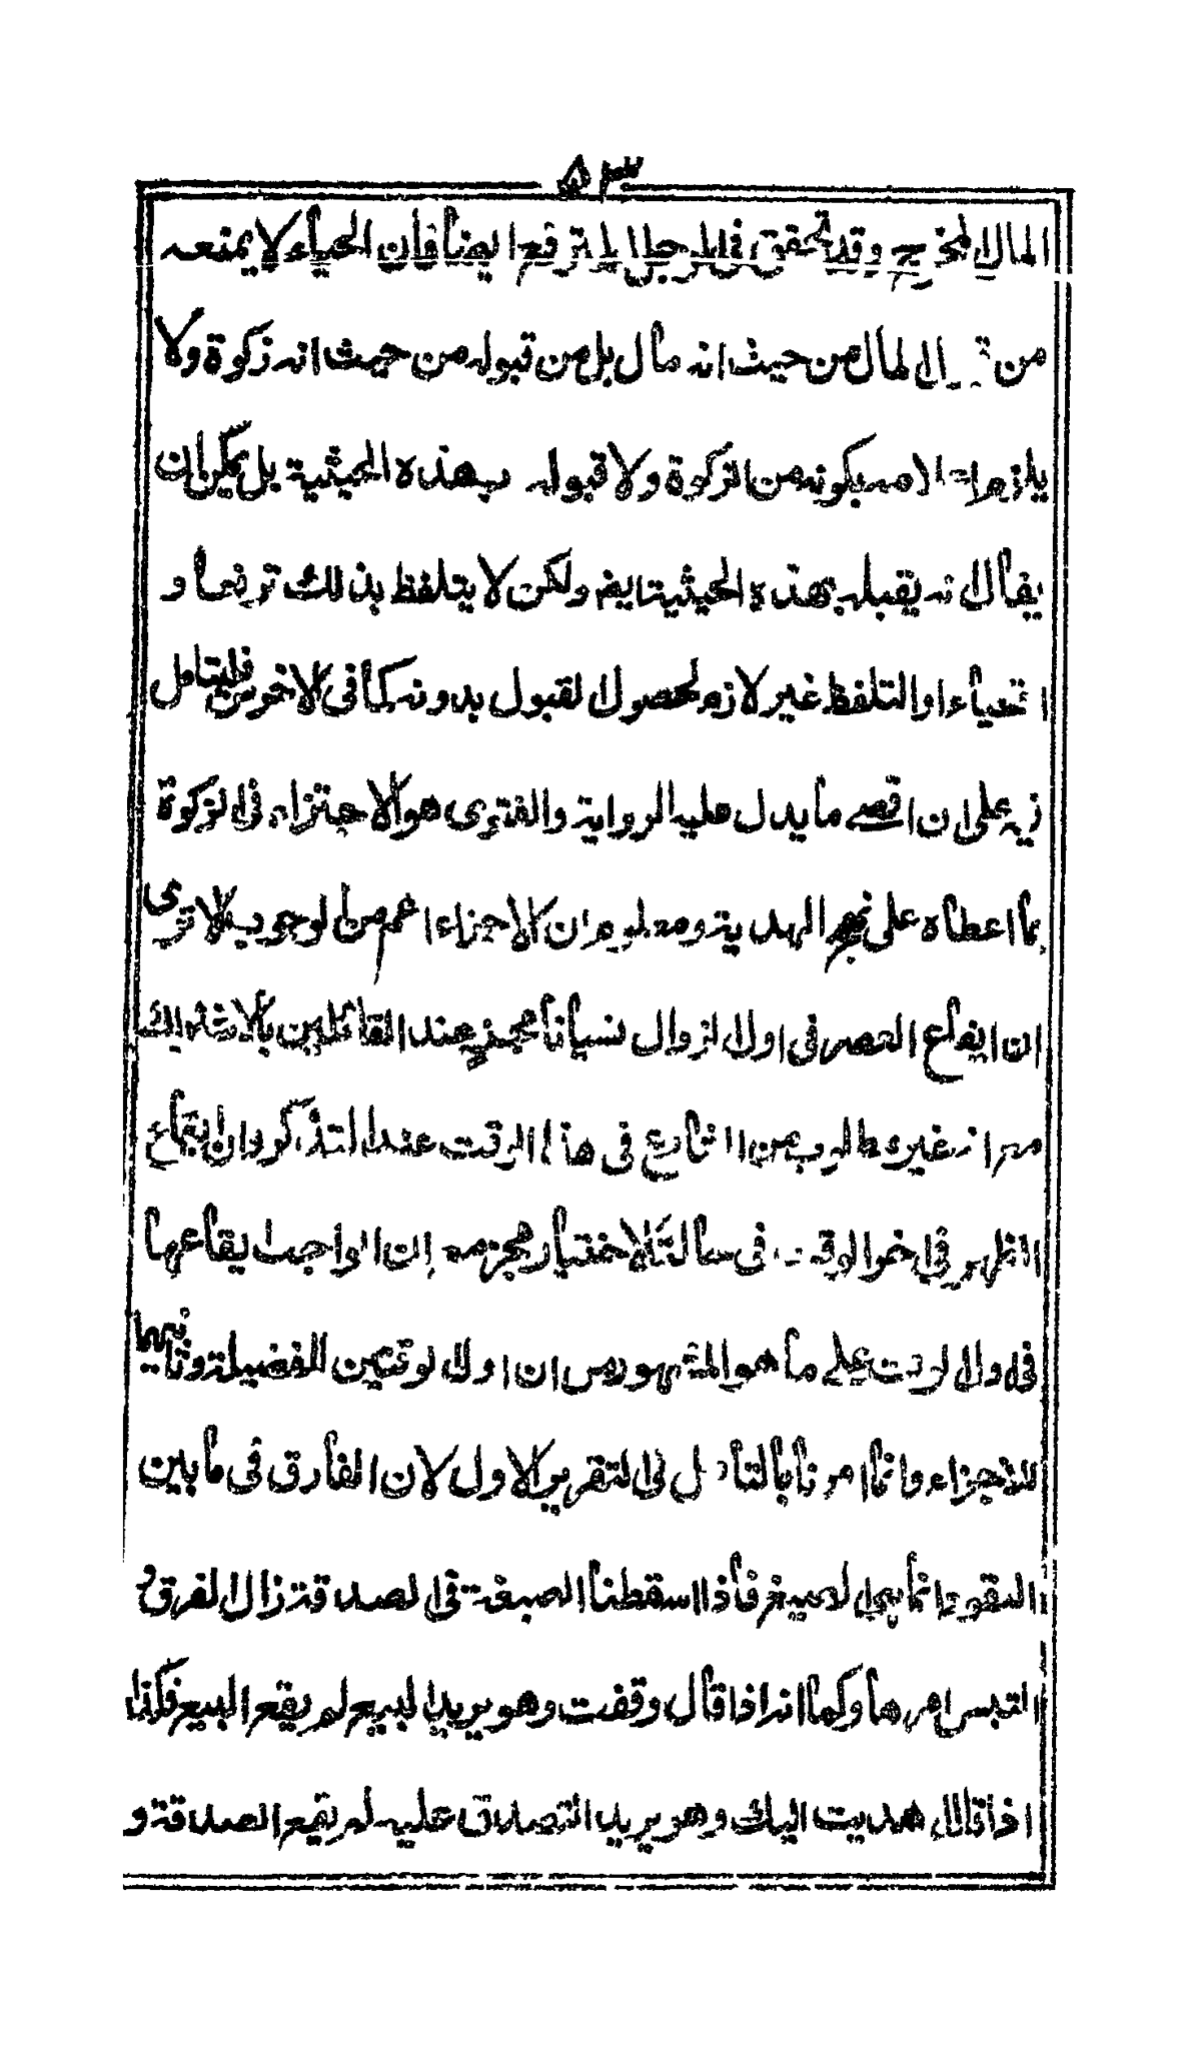 ٥٣
المال المخرج وقد تحقق في الرجل المترفع ايضا فان الحياء لا يمنعه
من المال من حيث انه مال بل من قبوله من حيث انه زكوة ولا
يلزم بكونه من الزكوة ولا قبوله بهذه الحيثية بل يمكن ان
يقال انه يقبله بهذه الحيثية ايضا ولكن لا يتلفظ بذلك ترفعا و
استحياء او التلفظ غير لازم لحصول القبول بدونه كما في الاخرس فليتامل
فيه على ان اقصى ما يدل عليه الرواية والفتوى هو الاجتزاء في الزكوة
بما اعطاه على نهج الهدية ومعلوم ان الاجزاء اعم من الوجوب الا ترى
ان ايقاع العصر في اول الزوال نسيانا مجز عند القائلين بالاشتراك
مع انه غير مطلوب من الشارع في هذا الوقت عند التذكر وان ايقاع
الظهر في اخر الوقت في حالة الاختيار مجز مع ان الواجب ايقاعها
في اول الوقت على ما هو المشهور من ان اول الوقتين للفضيلة وثانيهما
للاجزاء وانما امرنا بالتامل في التقرير الاول لان الفارق في ما بين
العقود انما هي الصيغ فاذا اسقطنا الصيغة في الصدقة زال الفرق و
التبس امرها وكما انه اذا قال وقفت وهو يريد البيع لم يقع البيع فكذا
اذا قال اهديت اليك وهو يريد التصدق عليه لم يقع الصدقة و